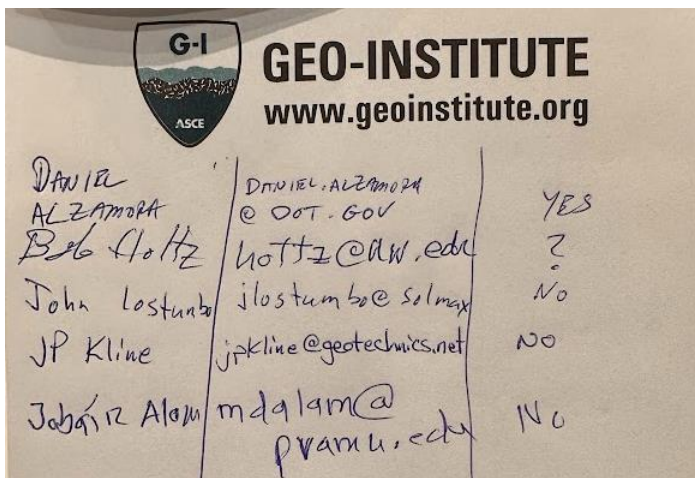 G-I
ASCE
GEO-INSTITUTE
www.geoinstitute.org
DANIEL DANIEL.ALZAMORA
ALZAMORA @ DOT.GOV YES
Bob Holtz holtz@uw.edu ?
John Lostumbo jlostumbo@solmax No
JP Kline jpkline@geotechnics.net NO
Jobair Alam mdalam@ No
pvamu.edu